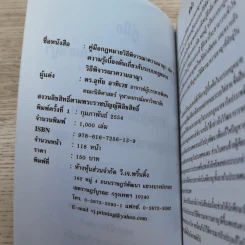 ชื่อหนังสือ : คู่มือกฎหมายวิธีพิจารณาความอาญา และ
ความรู้เบื้องต้นเกี่ยวกับระบบกฎหมาย
วิธีพิจารณาความอาญา
ผู้แต่ง : ดร.อุทัย อาทิเวช
คณะนิติศาสตร์ จุฬาลงกรณ์มหาวิทยาลัย
สงวนลิขสิทธิ์ตามพระราชบัญญัติลิขสิทธิ์
พิมพ์ครั้งที่ 1 : กุมภาพันธ์ 2554
จำนวนพิมพ์ : 1,000 เล่ม
ISBN : 978-616-7256-12-9
จำนวนหน้า : 118 หน้า
ราคา : 150 บาท
พิมพ์ที่ : ห้างหุ้นส่วนจำกัด วี.เจ.พริ้นติ้ง
เขตราษฎร์บูรณะ กรุงเทพฯ 10140
e-mail